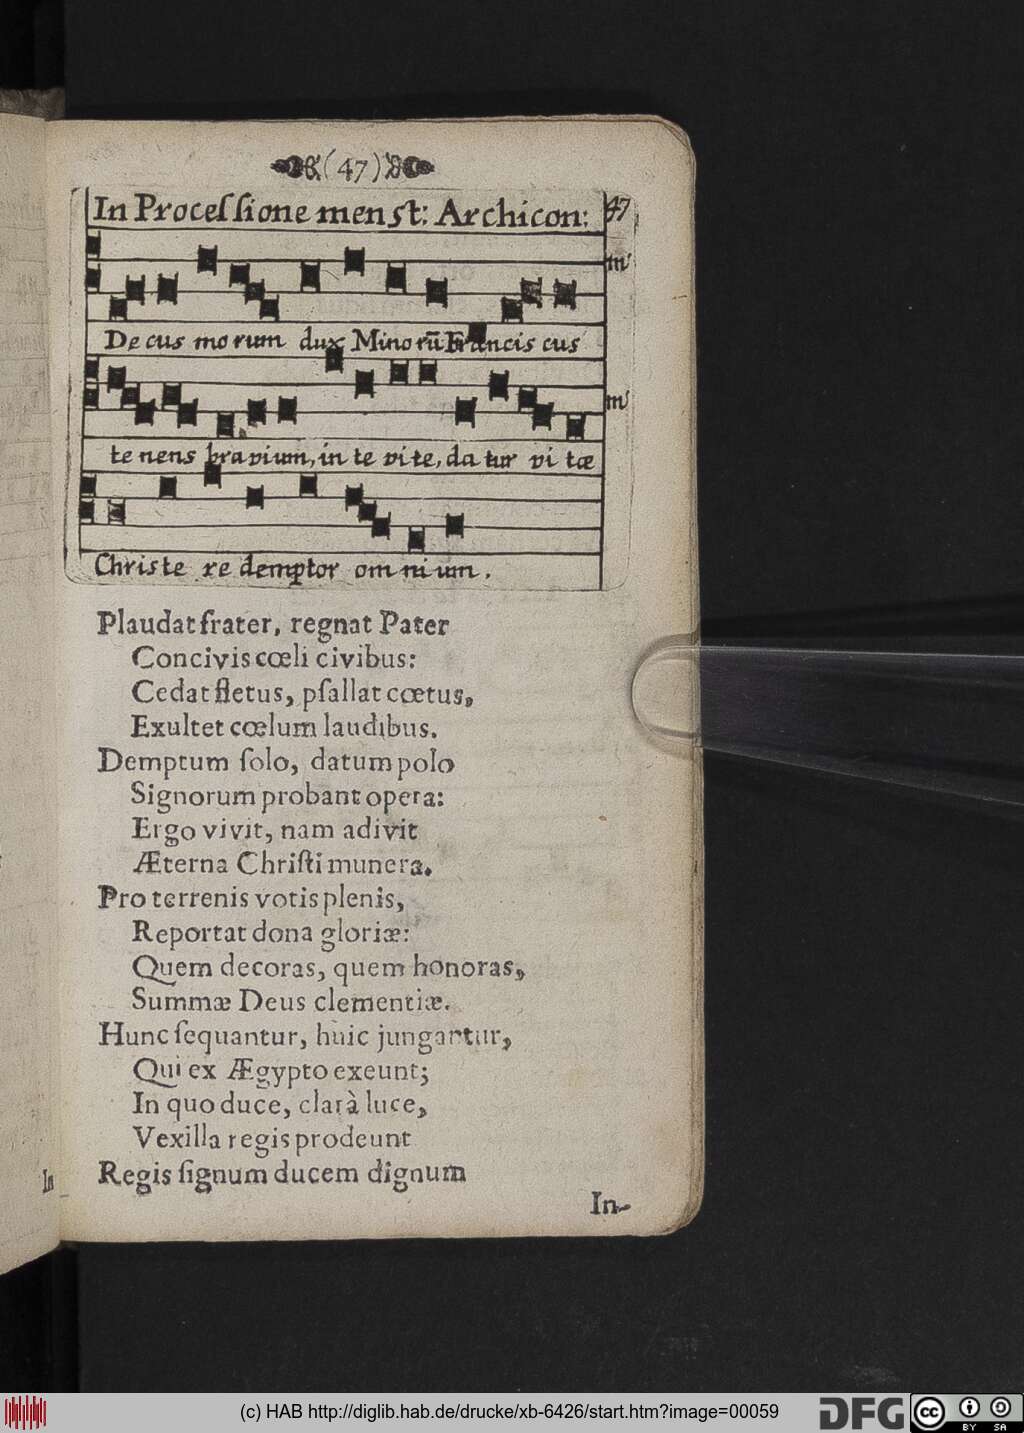 (47)
In Proceſſione menst: Archicon: 47
m
De cus mo rum dux Mino rū Francis cus
m
te nens bravium, in te vi te, da tur vi tæ
Christe re demptor om ni um.
Plaudat frater, regnat Pater
Concivis cœli civibus:
Cedat fletus, pſallat cœtus,
Exultet cœlum laudibus.
Demptum ſolo, datum polo
Signorum probant opera:
Ergo vivit, nam adivit
Æterna Chriſti munera.
Pro terrenis votis plenis,
Reportat dona gloriæ:
Quem decoras, quem honoras,
Summæ Deus clementiæ.
Hunc ſequantur, huic jungantur,
Qui ex Ægypto exeunt;
In quo duce, clarà luce,
Vexilla regis prodeunt
Regis ſignum ducem dignum
In-
In
(c) HAB http://diglib.hab.de/drucke/xb-6426/start.htm?image=00059
DFG
cc BY SA